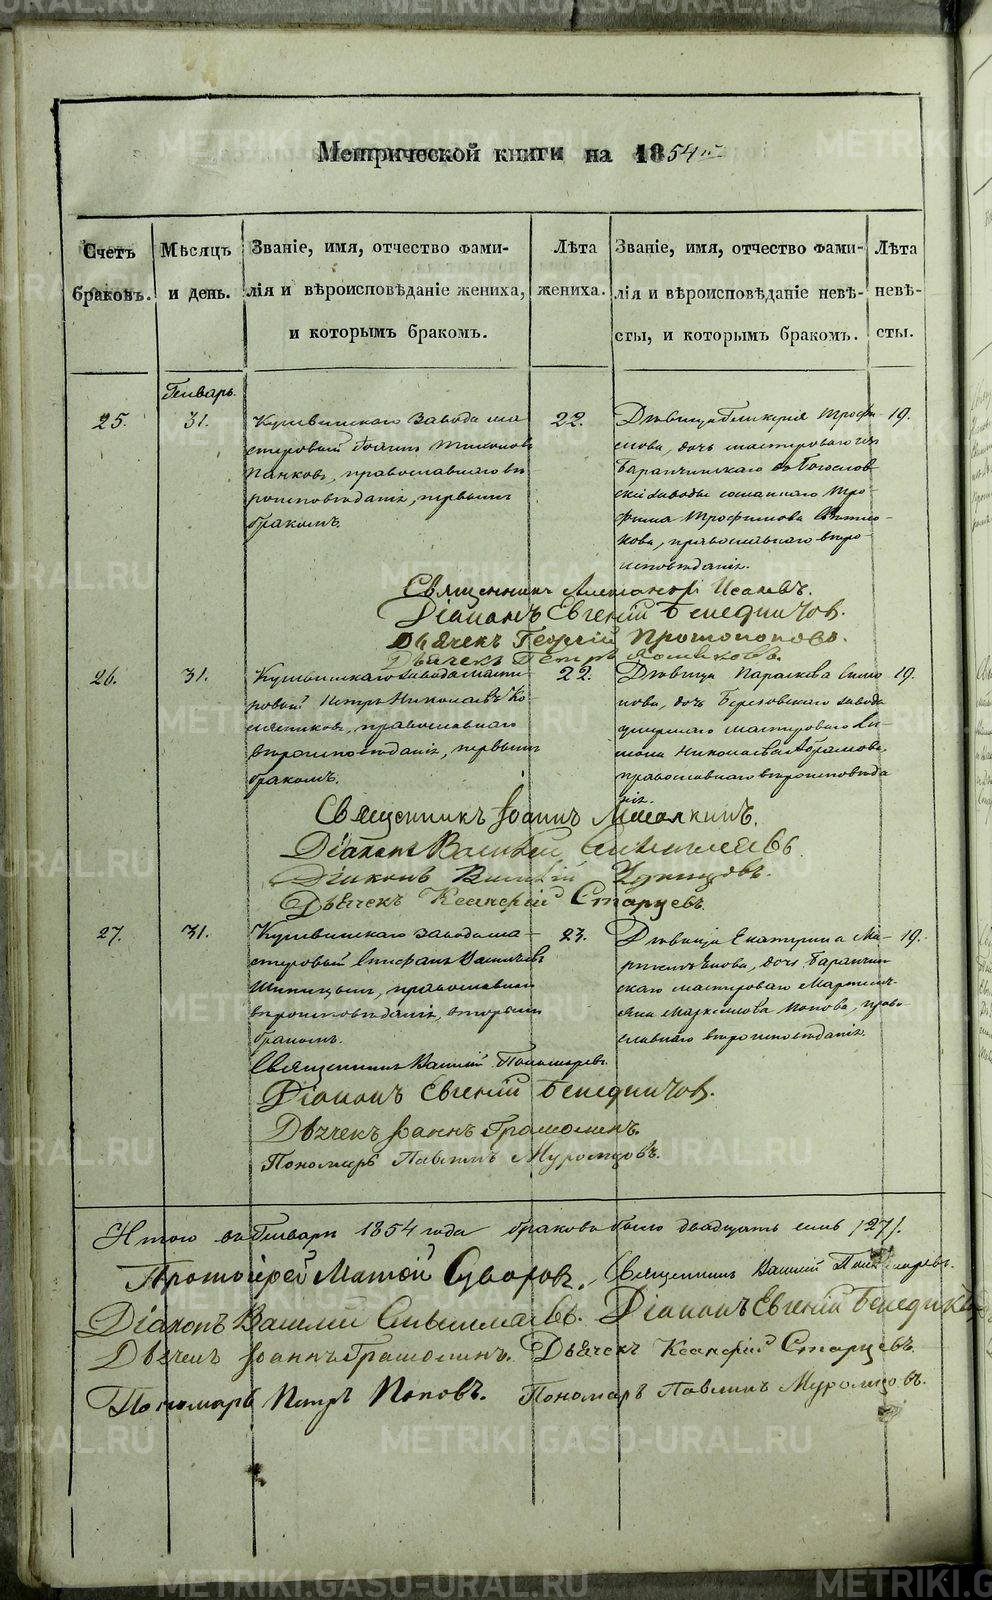 Метрической книги на 1854й
Счетъ браковъ.
Мѣсяцъ и день.
Званіе, имя, отчество фамилія и вѣроисповѣданіе жениха, и которымъ бракомъ.
Лѣта жениха.
Званіе, имя, отчество фамилія и вѣроисповѣданіе невѣсты, и которымъ бракомъ.
Лѣта невѣсты.
Январь
25.
31.
Кушвинскаго завода ма-
стеровый Тихоновъ
Панковъ, православнаго вѣ
роисповѣданія, первымъ
бракомъ.
22.
Дѣвица Гликерія Трофи-
мова, дочь мастероваго изъ
Баранчинскаго въ Богослов
скіе заводы сосланнаго Тро-
фима Трофимова
кова, православнаго вѣро-
исповѣданія.
19.
Священникъ Александръ
Діаконъ Евгеній Бенедиктовъ.
Дьячекъ Георгій Протопоповъ.
Дьячекъ Петръ
26.
31.
Кушвинскаго завода масте
ровый Петръ Николаевъ Ко
православнаго
вѣроисповѣданія, первымъ
бракомъ.
22.
Дѣвица Параскева Симо
нова, дочь Березовскаго завода
умершаго мастероваго Си-
мона Николаева Абрамова
православнаго вѣроисповѣда
нія.
19.
Священникъ Іоаннъ
Діаконъ Василій
Діаконъ Василій
Дьячекъ Ксенофій Старцевъ.
27.
31.
Кушвинскаго завода ма-
стеровый Епифанъ Васильевъ
Шипицынъ, православнаго
вѣроисповѣданія, вторымъ
бракомъ.
23.
Дѣвица Екатерина Ма-
дочь Баранчин
скаго мастероваго
яна Попова, право
славнаго вѣроисповѣданія.
19.
Священникъ Василій Пономаревъ.
Діаконъ Евгеній Бенедиктовъ.
Дьячекъ Іоаннъ Грамолинъ.
Пономарь Павлинъ Муромцовъ.
Итого въ Январѣ 1854 года браковъ было двадцать семь /27/.
Протоіерей Матѳій Суворовъ. Священникъ Василій Пономаревъ.
Діаконъ Василій Діаконъ Евгеній Бенедиктовъ
Дьячекъ Іоаннъ Грамолинъ. Дьячекъ Ксенофій Старцевъ.
Пономарь Петръ Поповъ. Пономарь Павлинъ Муромцовъ.
METRIKI.GASO-URAL.RU